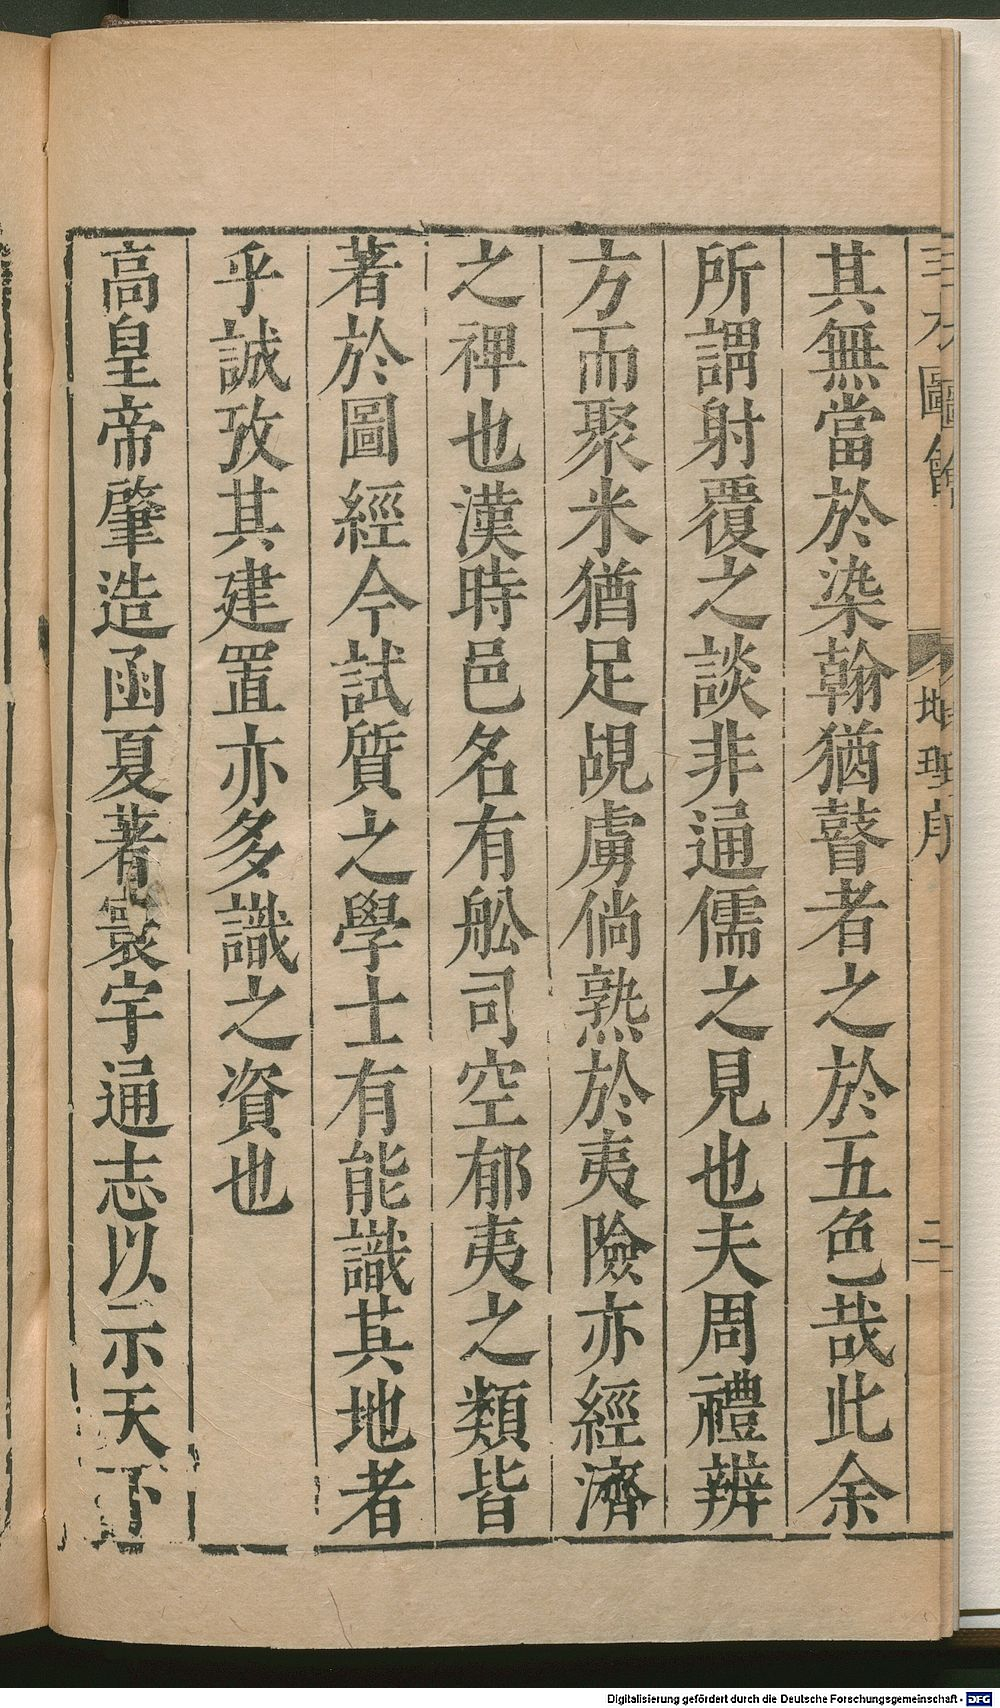 三才圖會
地理序
二
其無當於染翰猶瞽者之於五色哉此余
所謂射覆之談非通儒之見也夫周禮辨
方而聚米猶足覘虜倘熟於夷險亦經濟
之裨也漢時邑名有舩司空郁夷之類皆
著於圖經今試質之學士有能識其地者
乎誠攷其建置亦多識之資也
高皇帝肇造函夏著寰宇通志以示天下
Digitalisierung gefördert durch die Deutsche Forschungsgemeinschaft - DFG